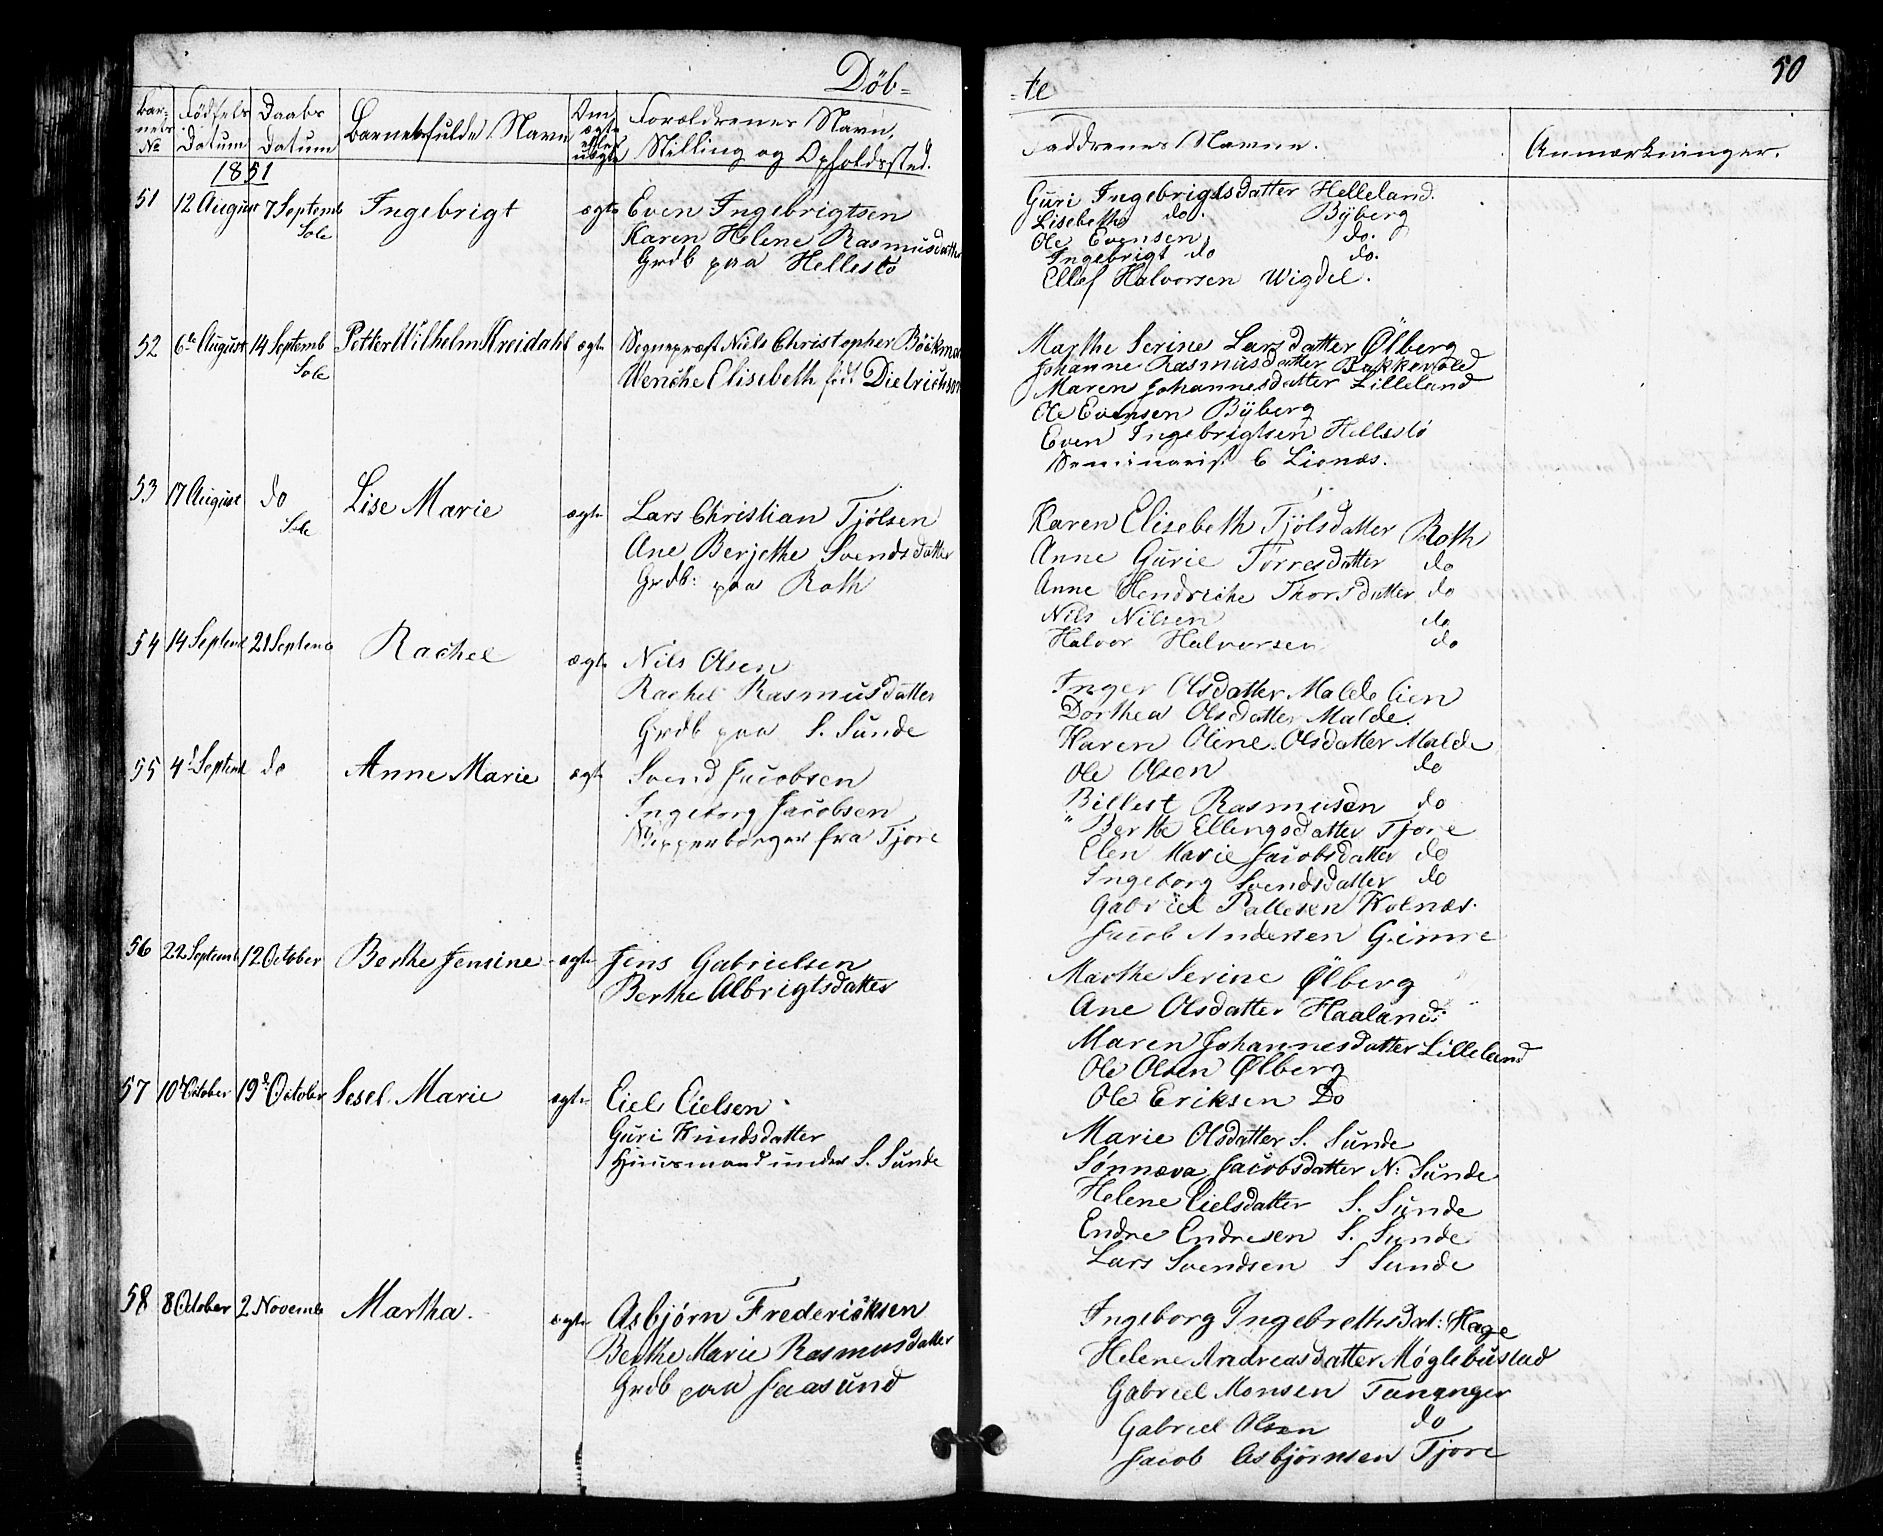 Döb=
Bar=
nets
No
Födsels
Datum
Daabs
Datum
Barnets fulde Navn
Om
ægte
eller
uægte
Forældrenes Navn,
Stilling og Opholdssted.
1851
51 12 August 7 Septemb Ingebrigt ægte Even Ingebrigtsen
Sole
Karen Helene Rasmusdatter
Grdb paa Hellestö
52 6te August 14 Septemb Petter Wilhelm Kreidahl ægte Sognepræst Nils Christopher Böckman
Sole
Wenche Elisebeth föd Dietrichson
53 17 August do Lise Marie ægte Lars Christian Tjölsen
Sole
Ane Berjethe Svendsdatter
Grdb: paa Roth
54 14 Septemb 21 Septemb Rachel ægte Nils Olsen
Rachel Rasmusdatter
Grdb paa S. Sunde
55 4d Septemb do Anne Marie ægte Svend Jacobsen
Ingeborg Jacobsen
fra Tjore
56 22 Septemb 12 October Berthe Jensine ægte Jens Gabrielsen
Berthe Albrigtsdatter
57 10d October 19d October Sesel Marie ægte Eiel Eielsen
Guri Knudsdatter
Huusmand under S. Sunde
58 8 October 2 Novemb Martha. ægte Asbjørn Fredericksen
Berthe Marie Rasmusdatter
Grdb paa Jaasund
=te
50
Faddrenes Navne.
Anmærkninger.
Guri Ingebrigtsdatter Helleland.
Lisebeth do. Byberg
Ole Evensen do.
Ingebrigt do do.
Ellef Halvorsen Wigdel.
Marthe Serine Larsdatter Ølberg
Johanne Rasmusdatter
Maren Johannesdatter Lilleland
Ole Evensen Byberg
Even Ingebrigtsen Hellestö
Seminarist C Lionæs.
Karen Elisebeth Tjölsdatter Roth
Anne Gurie Torresdatter do
Anne Hendriche Thorsdatter do
Nils Nilsen do
Halvor Halvorsen do
Inger Olsdatter Malde lien
Dorthea Olsdatter Malde.
Karen Oline Olsdatter Malde
Ole Olsen do
Billest Rasmusen do
Berthe Ellingsdatter Tjore
Elen Marie Jacobsdatter do
Ingeborg Svendsdatter do
Gabriel Pallesen Kolnæs.
Jacob Andersen Gimre
Marthe Serine Ølberg
Ane Olsdatter Haaland
Maren Johannesdatter Lilleland
Ole Olsen Ølberg
Ole Eriksen Do
Marie Olsdatter S. Sunde
Sönnæva Jacobsdatter N: Sunde
Helene Eielsdatter S. Sunde
Endre Endresen S. Sunde
Lars Svendsen S Sunde
Ingeborg Ingebrethsdat: Hage
Helene Andreasdatter Møglebustad
Gabriel Monsen Tananger
Gabriel Olsen do
Jacob Asbjørnsen Tjore